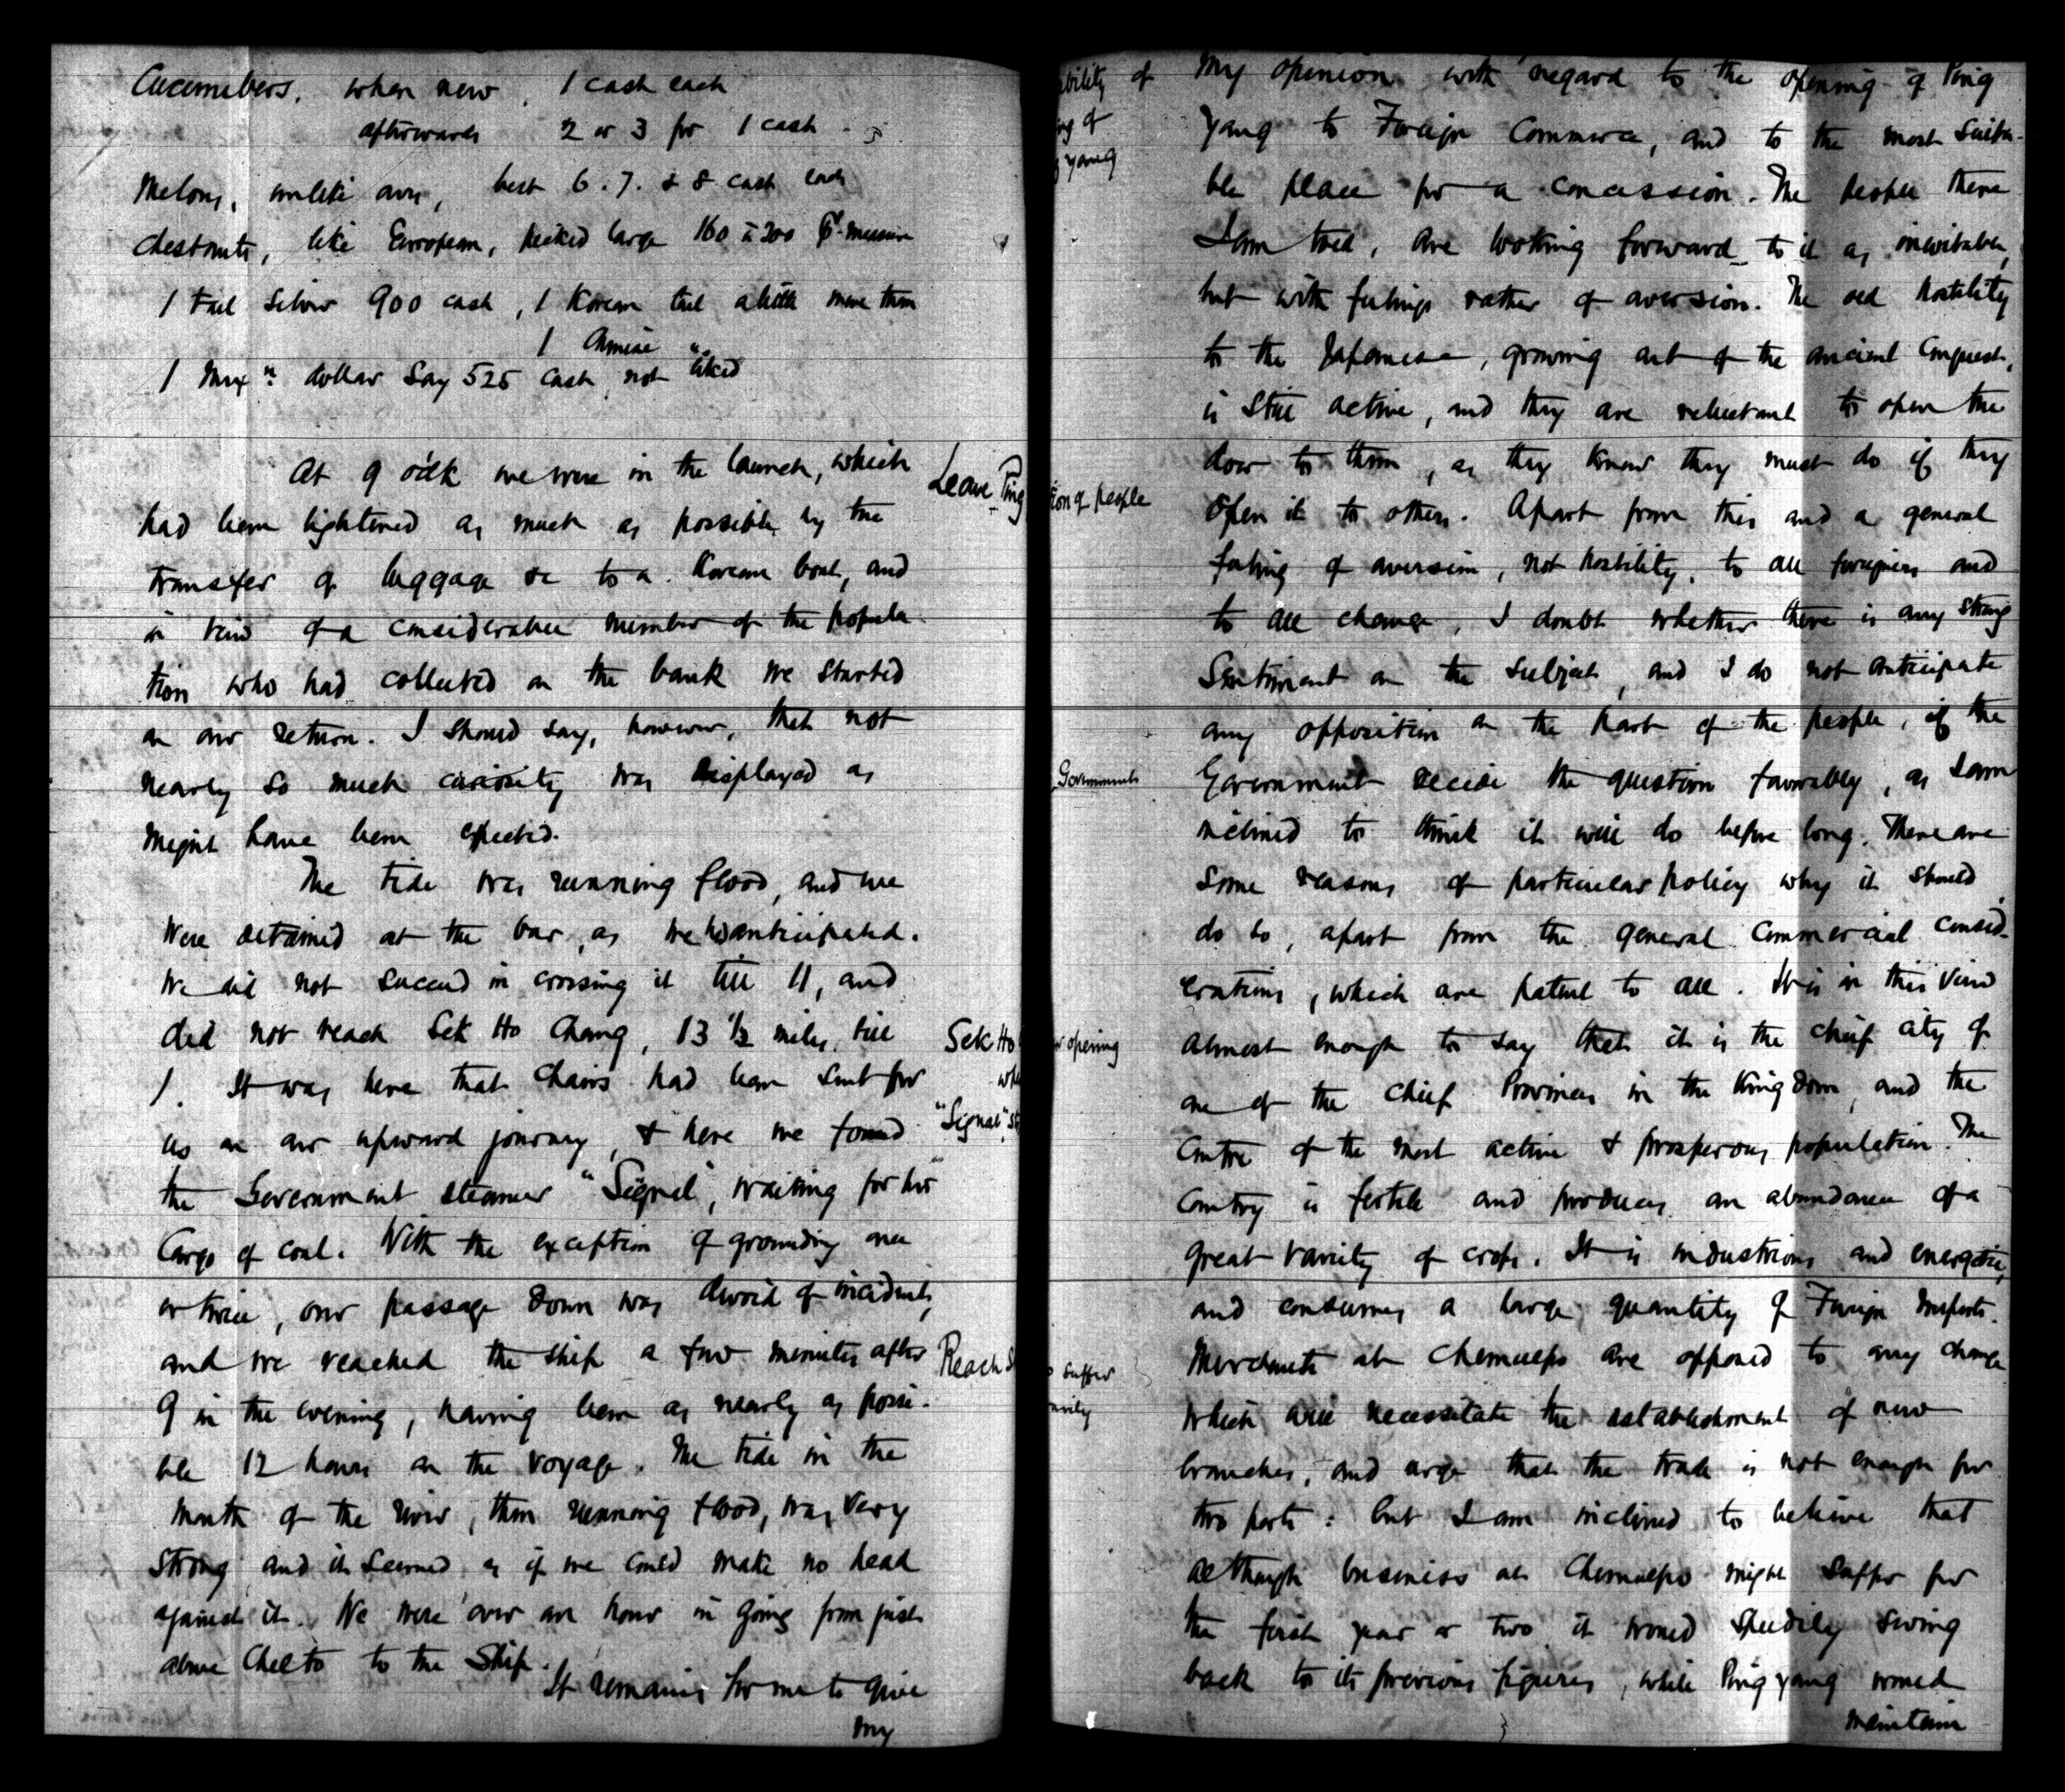 Cucumbers. when new, 1 cash each
afterwards 2 or 3 for 1 cash
Melons, unlike ours, best 6. 7. & 8 cash each
Chestnuts, like European, picked large 160 à 200 measure
1 tael silver 900 cash, 1 Korean tael a little more than
1 Chinese "
1 Mexn dollar say 525 cash, not liked
At 9 o'clk we were in the launch, which
Leave Ping
had been lightened as much as possible by the
transfer of luggage &c to a Korean boat, and
in view of a considerable number of the popula-
tion who had collected on the bank we started
on our return. I should say, however, that not
nearly so much curiosity was displayed as
might have been expected.
The tide was running flood, and we
were detained at the bar, as we had anticipated.
We did not succeed in crossing it till 11, and
did not reach Sek Ho Chang, 13 1/2 miles, till
Sek Ho
1. It was here that chairs had been sent for
us on our upward journey, & here we found
"Signal"
the Government steamer "Signal", waiting for her
Cargo of coal. With the exception of grounding once
or twice, our passage down was devoid of incident,
and we reached the ship a few minutes after
Reach
9 in the evening, having been as nearly as possi-
ble 12 hours on the voyage. The tide in the
mouth of the river, then running flood, was very
strong and it seemed as if we could make no head
against it. We were over an hour in going from just
above Cheeto to the Ship.
It remains for me to give
my
ability of
ing of
g yang
My opinion with regard to the opening of Ping
yang to Foreign Commerce, and to the most suita-
ble place for a concession. The people there
I am told, are looking forward to it as inevitable,
but with feelings rather of aversion. The old hostility
to the Japanese, growing out of the ancient Conquest,
is still active, and they are reluctant to open the
door to them, as they know they must do if they
tion of people
open it to others. Apart from this and a general
feeling of aversion, not hostility, to all foreigners and
to all change, I doubt whether there is any strong
Sentiment on the subject, and I do not anticipate
any opposition on the part of the people, if the
Governments
Government decide the question favorably, as I am
inclined to think it will do before long. There are
some reasons of particular policy why it should
do so, apart from the general Commercial consid-
erations, which are patent to all. It is in this view
or opening
almost enough to say that it is the chief city of
one of the chief Provinces in the Kingdom, and the
Centre of the most active & prosperous population. The
Country is fertile and produces an abundance of a
great variety of crops. It is industrious and energetic,
and consumes a large quantity of Foreign Imports.
Merchants at Chemulpo are opposed to any change
suffer
which will necessitate the establishment of new
branches, and urge that the trade is not enough for
two ports: but I am inclined to believe that
although business at Chemulpo might suffer for
the first year or two it would speedily swing
back to its previous figures, while Ping yang would
maintain